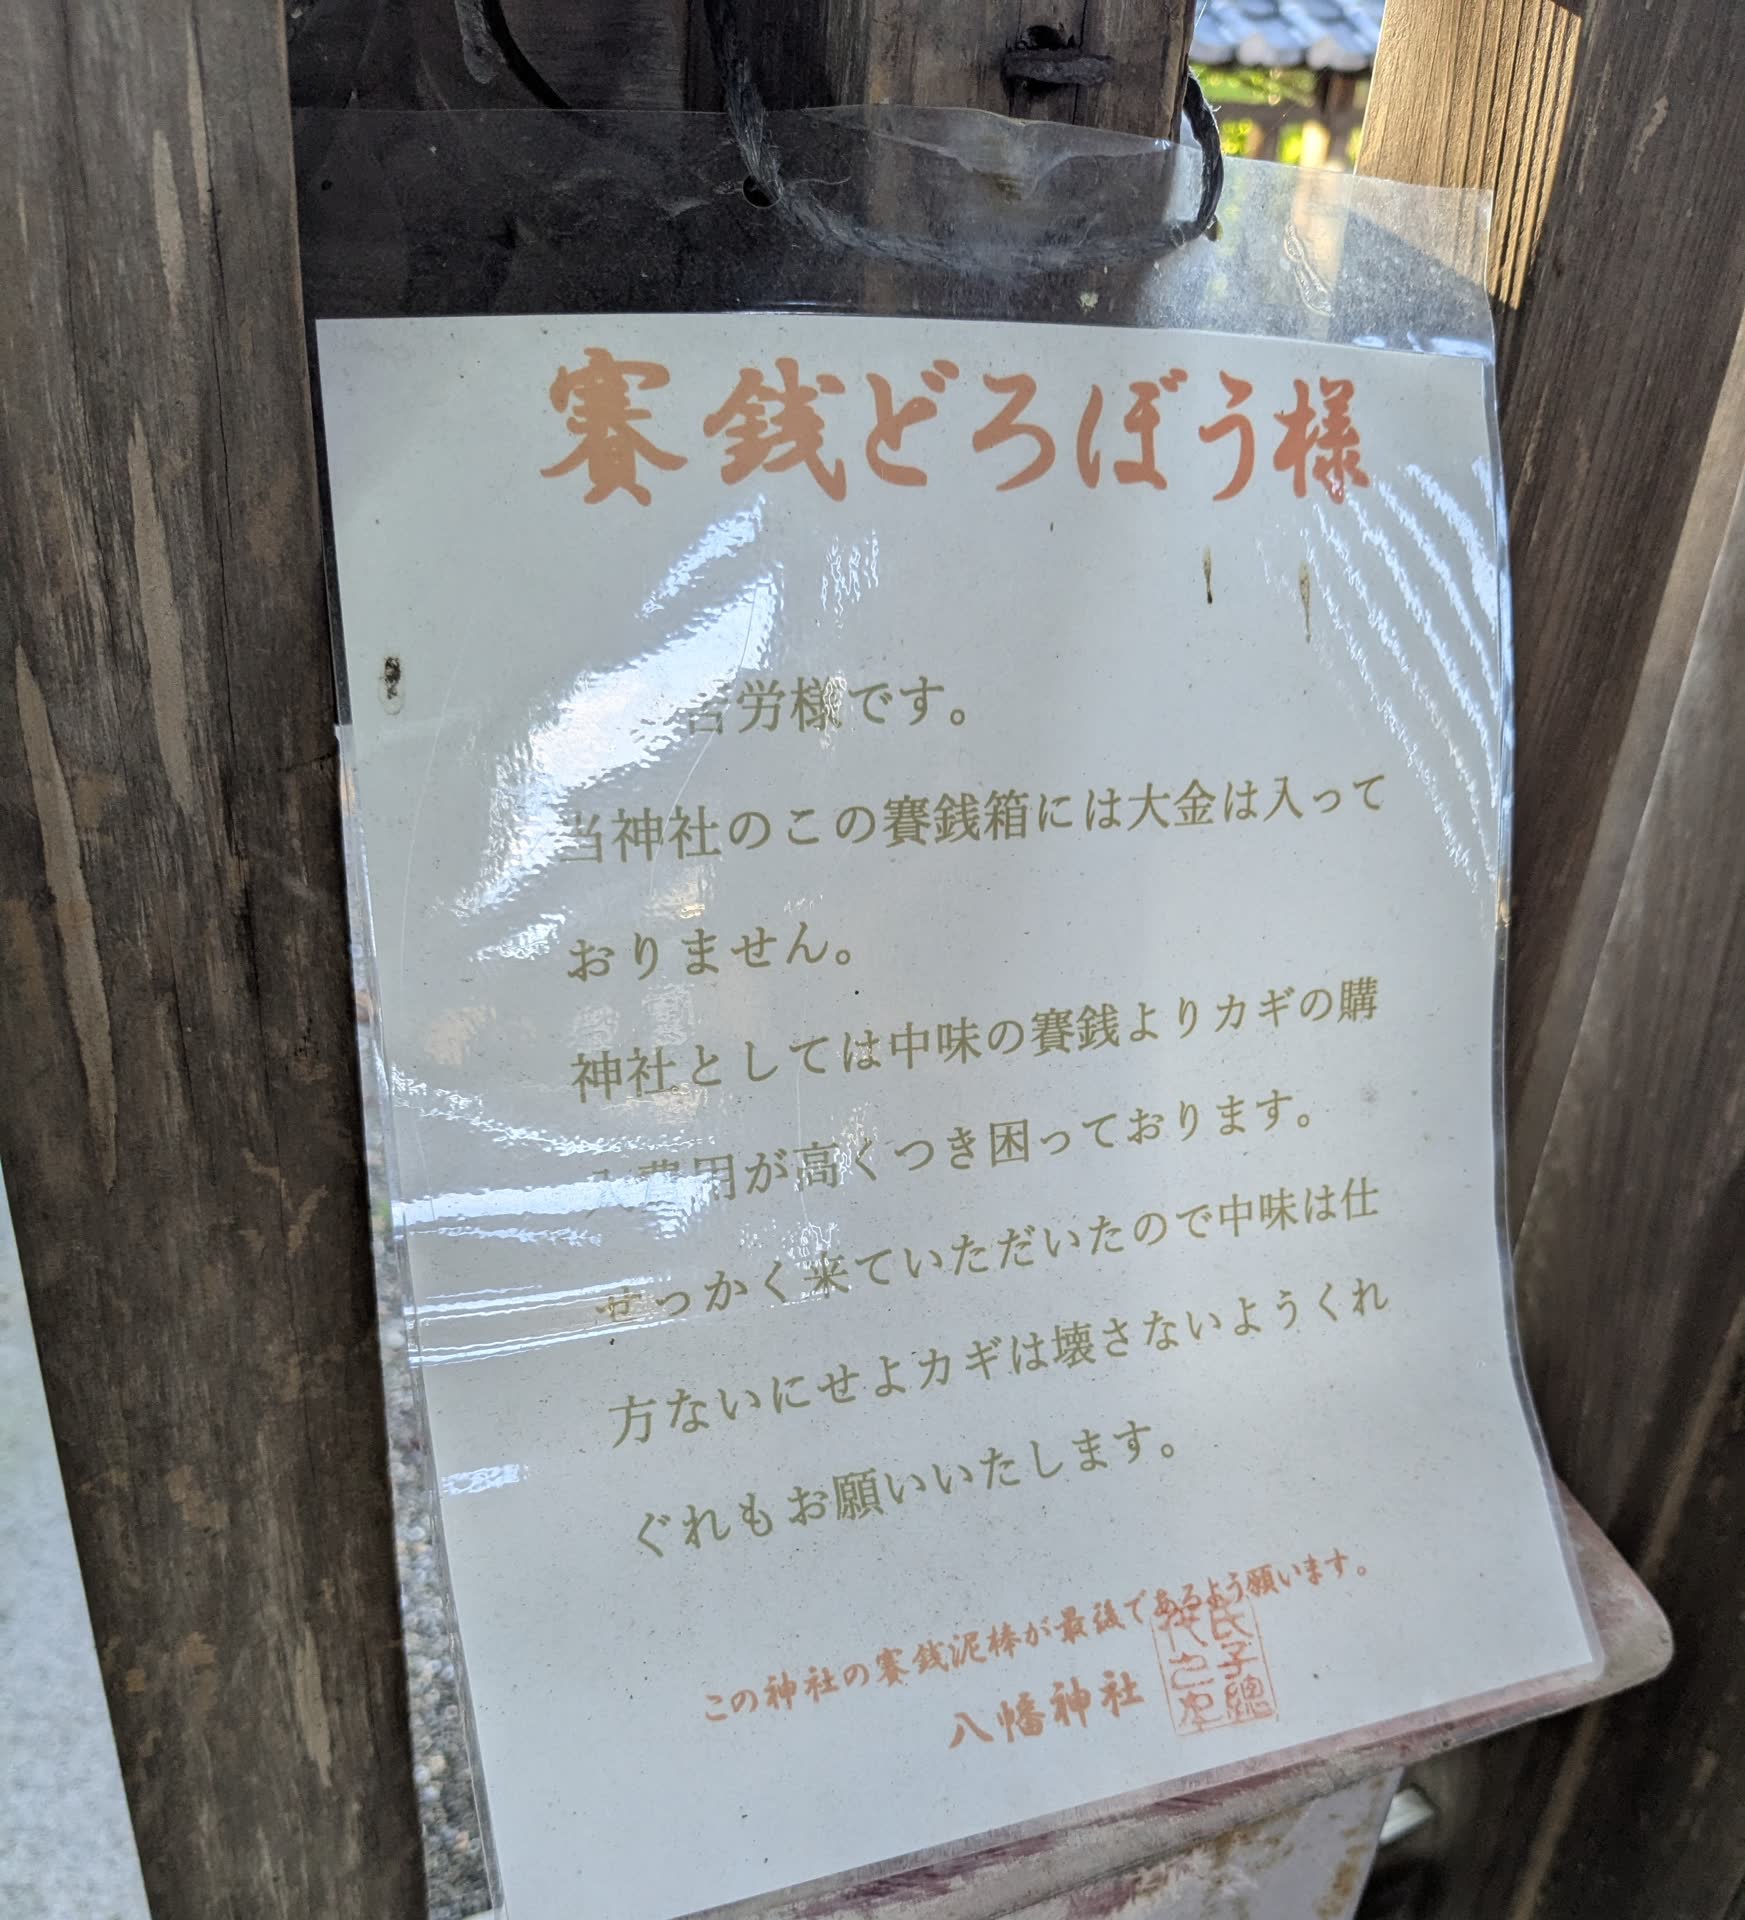 賽銭どろぼう様
苦労様です。
当神社のこの賽銭箱には大金は入って
おりません。
神社としては中味の賽銭よりカギの購
入費用が高くつき困っております。
せっかく来ていただいたので中味は仕
方ないにせよカギは壊さないようくれ
ぐれもお願いいたします。
この神社の賽銭泥棒が最後であるよう願います。
八幡神社
氏子總
代之印